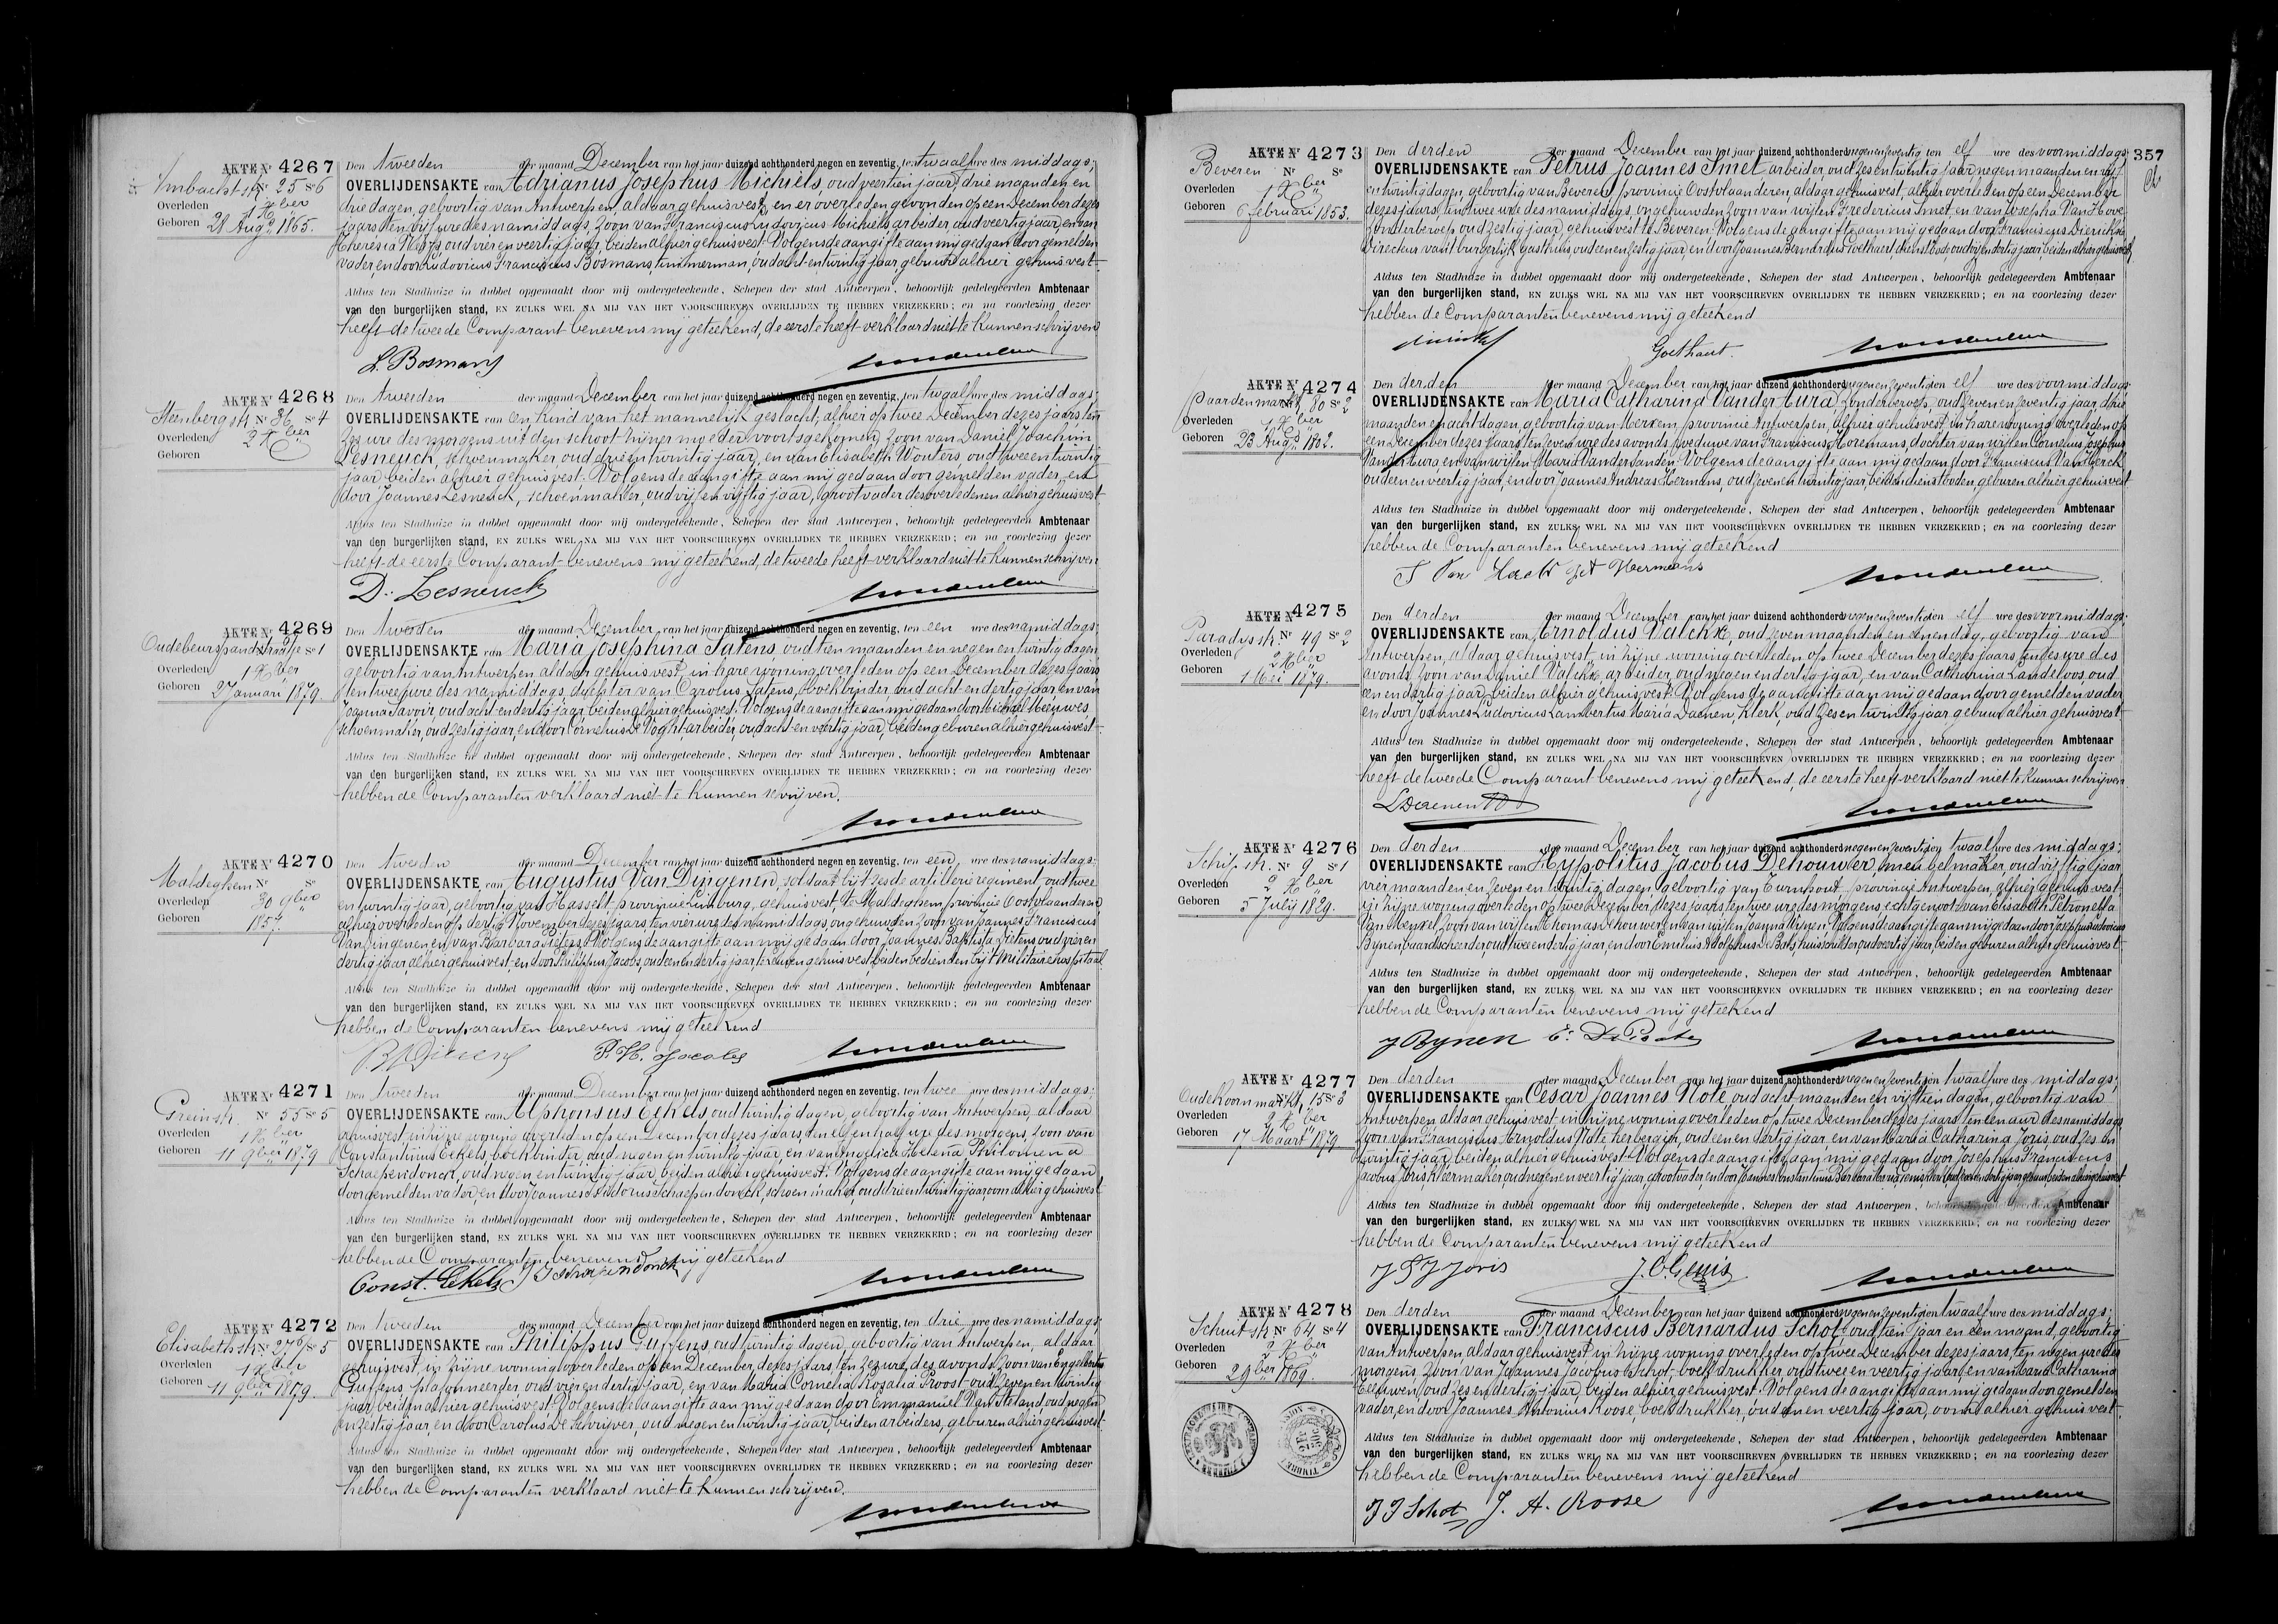 AKTE Nr 4267
Ambachtstr. Nr 25 Sn 6
Overleden
1 Xber
Geboren 28 Augt 1865.
Den tweeden der maand December van het jaar duizend achthonderd negen en zeventig, ten twaalf ure des middags;
OVERLIJDENSAKTE van Adrianus Josephus Michiels, oud veertien jaar, drie maanden en
drie dagen, geboortig van Antwerpen, aldaar gehuisvest, en er overleden gevonden op een December dezes
jaars, ten vijf ure des namiddags, zoon van Franciscus Ludovicus Michiels, arbeider, oud veertig jaar, en van
Theresia Nuyts, oud vier en veertig jaar, beiden alhier gehuisvest. Volgens de aangifte aan mij gedaan door gemelden
vader, en door Ludovicus Franciscus Bosmans, timmerman, oud acht en twintig jaar, gebuur alhier gehuisvest.
Aldus ten Stadhuize in dubbel opgemaakt door mij ondergeteekende, Schepen der stad Antwerpen, behoorlijk gedelegeerden Ambtenaar
van den burgerlijken stand, EN ZULKS WEL NA MIJ VAN HET VOORSCHREVEN OVERLIJDEN TE HEBBEN VERZEKERD; en na voorlezing dezer
heeft de tweede Comparant benevens mij geteekend, de eerste heeft verklaard niet te kunnen schrijven
L. Bosmans
AKTE Nr 4268
Steenbergstr. Nr 36 Sn 4
Overleden
2 Xber
Geboren
Den tweeden der maand December van het jaar duizend achthonderd negen en zeventig, ten twaalf ure des middags;
OVERLIJDENSAKTE van een kind van het mannelijk geslacht, alhier op twee December dezes jaars, ten
zes ure des morgens uit den schoot zijner moeder voortsgekomen, zoon van Daniel Joachim
Lesneuck, schoenmaker, oud drie en twintig jaar, en van Elisabeth Wouters, oud twee en twintig
jaar, beiden alhier gehuisvest. Volgens de aangifte aan mij gedaan door gemelden vader, en
door Joannes Lesneuck, schoenmaker, oud vijf en vijftig jaar, grootvader des overledenen alhier gehuisvest
Aldus ten Stadhuize in dubbel opgemaakt door mij ondergeteekende, Schepen der stad Antwerpen, behoorlijk gedelegeerden Ambtenaar
van den burgerlijken stand, EN ZULKS WEL NA MIJ VAN HET VOORSCHREVEN OVERLIJDEN TE HEBBEN VERZEKERD; en na voorlezing dezer
heeft de eerste Comparant benevens mij geteekend, de tweede heeft verklaard niet te kunnen schrijven
D. Lesneuck
AKTE Nr 4269
Oudebeurspand Sn 1
Overleden
1 Xber
Geboren 2 Januari 1879.
Den tweeden der maand December van het jaar duizend achthonderd negen en zeventig, ten een ure des namiddags;
OVERLIJDENSAKTE van Maria Josephina Satens, oud tien maanden en negen en twintig dagen
geboortig van Antwerpen aldaar gehuisvest, in hare woning overleden op een December dezes jaars
ten twee ure des namiddags, dochter van Carolus Satens, boekbinder, oud acht en dertig jaar en van
Joanna Savoir, oud acht en dertig jaar, beiden alhier gehuisvest. Volgens de aangifte aan mij gedaan door Michael Meeuwes
schoenmaker, oud zestig jaar, en door Cornelius De Voght, arbeider, oud acht en veertig jaar, beiden geburen alhier gehuisvest
Aldus ten Stadhuize in dubbel opgemaakt door mij ondergeteekende, Schepen der stad Antwerpen, behoorlijk gedelegeerden Ambtenaar
van den burgerlijken stand, EN ZULKS WEL NA MIJ VAN HET VOORSCHREVEN OVERLIJDEN TE HEBBEN VERZEKERD; en na voorlezing dezer
hebben de Comparanten verklaard niet te kunnen schrijven.
AKTE Nr 4270
Maldeghem Nr Sn
Overleden 30 9ber
Geboren
1857.
Den tweeden der maand December van het jaar duizend achthonderd negen en zeventig, ten een ure des namiddags;
OVERLIJDENSAKTE van Augustus Van Dingenen, soldaat bij 't zesde artillerie regiment, oud twee
en twintig jaar, geboortig van Hasselt provincie Limburg, gehuisvest te Maldeghem provincie Oostvlaanderen
alhier overleden op dertig November dezes jaars ten vier ure des namiddags, ongehuwden zoon van Joannes Franciscus
Van Dingenen en van Barbara Volgens de aangifte aan mij gedaan door Joannes Baptista Dielens oud vier en
dertig jaar alhier gehuisvest, en door Philippus Jacobs, oud een en dertig jaar, te Leuven gehuisvest, beiden bedienden bij 't Militaire hospitaal
Aldus ten Stadhuize in dubbel opgemaakt door mij ondergeteekende, Schepen der stad Antwerpen, behoorlijk gedelegeerden Ambtenaar
van den burgerlijken stand, EN ZULKS WEL NA MIJ VAN HET VOORSCHREVEN OVERLIJDEN TE HEBBEN VERZEKERD; en na voorlezing dezer
hebben de Comparanten benevens mij geteekend
P. H. Jacobs
AKTE Nr 4271
Greinstr. Nr 55 Sn 5
Overleden
1 Xber
Geboren 11 9ber 1879
Den tweeden der maand December van het jaar duizend achthonderd negen en zeventig, ten twee ure des middags;
OVERLIJDENSAKTE van Alphonsus Eekels oud twintig dagen, geboortig van Antwerpen, aldaar
gehuisvest, in zijne woning overleden op een December dezes jaars, ten elf en half ure des morgens, zoon van
Constantinus Eekels, boekbinder, oud negen en twintig jaar, en van Angelica Helena Philomena
Schaependonck, oud negen en twintig jaar, beiden alhier gehuisvest. Volgens de aangifte aan mij gedaan
door gemelden vader en door Joannes Isidorus Schaependonck, schoenmaker oud drie en twintig jaar, oom alhier gehuisvest
Aldus ten Stadhuize in dubbel opgemaakt door mij ondergeteekende, Schepen der stad Antwerpen, behoorlijk gedelegeerden Ambtenaar
van den burgerlijken stand, EN ZULKS WEL NA MIJ VAN HET VOORSCHREVEN OVERLIJDEN TE HEBBEN VERZEKERD; en na voorlezing dezer
hebben de Comparanten benevens mij geteekend
Const. Eekels J I Schaependonck
AKTE Nr 4272
Elisabethstr. Nr 276 Sn 5
Overleden
1 Xber
Geboren 11 9ber 1879.
Den tweeden der maand December van het jaar duizend achthonderd negen en zeventig, ten drie ure des namiddags
OVERLIJDENSAKTE van Philippus Guffens, oud twintig dagen, geboortig van Antwerpen, aldaar
gehuisvest, in zijne woning overleden op een December, dezes jaars ten zes ure, des avonds, zoon van Engelbertus
Guffens, plafonneerder, oud vier en dertig jaar, en van Maria Cornelia Rosalia Proost, oud zeven en twintig
jaar, beiden alhier gehuisvest. Volgens de aangifte aan mij gedaan door Emmanuel Van Steland, oud negen
en zestig jaar, en door Carolus De Schrijver, oud negen en twintig jaar, beiden arbeiders, geburen alhier gehuisvest.
Aldus ten Stadhuize in dubbel opgemaakt door mij ondergeteekende, Schepen der stad Antwerpen, behoorlijk gedelegeerden Ambtenaar
van den burgerlijken stand, EN ZULKS WEL NA MIJ VAN HET VOORSCHREVEN OVERLIJDEN TE HEBBEN VERZEKERD; en na voorlezing dezer
hebben de Comparanten verklaard niet te kunnen schrijven.
357
AKTE Nr 4273
Beveren Nr Sn
Overleden
1 Xber
Geboren 6 februari 1853.
Den derden der maand December van het jaar duizend achthonderd negenenzeventig ten elf ure des voormiddags;
OVERLIJDENSAKTE van Petrus Joannes Smet arbeider, oud zes en twintig jaar, negen maanden en vijf
en twintig dagen, geboortig van Beveren, provincie Oostvlaanderen, aldaar gehuisvest, alhier overleden op een December
dezes jaars, ten twee ure des namiddags, ongehuwden zoon van wijlen Fredericus Smet, en van Josepha Van Hove
zonder beroep oud zestig jaar, gehuisvest te Beveren. Volgens de aangifte aan mij gedaan door Franciscus Dierickx
Directeur van 't burgerlijk gasthuis, oud een en zestig jaar, en door Joannes Bernardus Goethaert, dienstbode, oud vijf en dertig jaar, beiden alhier gehuisvest
Aldus ten Stadhuize in dubbel opgemaakt door mij ondergeteekende, Schepen der stad Antwerpen, behoorlijk gedelegeerden Ambtenaar
van den burgerlijken stand, EN ZULKS WEL NA MIJ VAN HET VOORSCHREVEN OVERLIJDEN TE HEBBEN VERZEKERD; en na voorlezing dezer
hebben de Comparanten benevens mij geteekend
Goethaert.
AKTE Nr 4274
Paardenmarkt 80 Sn 2
Overleden
1 Xber
Geboren 23 Augt 1802.
Den derden der maand December van het jaar duizend achthonderd negenenzeventig ten elf ure des voormiddags
OVERLIJDENSAKTE van Maria Catharina Vander Aura, zonder beroep, oud zeven en zeventig jaar, drie
maanden en acht dagen, geboortig van Merxem, provincie Antwerpen, alhier gehuisvest, in hare woning overleden op
een December dezes jaars, ten zeven ure des avonds, weduwe van Franciscus Horemans, dochter van wijlen Cornelius Josephus
Vander Aura, en van wijlen Maria Vander Sanden. Volgens de aangifte aan mij gedaan door Franciscus Van Herck
oud een en veertig jaar, en door Joannes Andreas Hermans, oud zeven en twintig jaar, beiden dienstboden, geburen alhier gehuisvest
Aldus ten Stadhuize in dubbel opgemaakt door mij ondergeteekende, Schepen der stad Antwerpen, behoorlijk gedelegeerden Ambtenaar
van den burgerlijken stand, EN ZULKS WEL NA MIJ VAN HET VOORSCHREVEN OVERLIJDEN TE HEBBEN VERZEKERD; en na voorlezing dezer
hebben de Comparanten benevens mij geteekend
Hermans
AKTE Nr 4275
Paradysstr. Nr 49 Sn 2
Overleden
2 Xber
Geboren
1 Mei 1879.
Den derden der maand December van het jaar duizend achthonderd negenenzeventig ten elf ure des voormiddags;
OVERLIJDENSAKTE van Arnoldus Valckx, oud zeven maanden en eenen dag, geboortig van
Antwerpen, aldaar gehuisvest, in zijne woning overleden op twee December dezes jaars, ten zes ure des
avonds, zoon van Daniel Valckx, arbeider, oud negen en dertig jaar, en van Catharina Landeloos, oud
een en dertig jaar, beiden alhier gehuisvest. Volgens de aangifte aan mij gedaan door gemelden vader
en door Joannes Ludovicus Lambertus Maria Daenen, klerk, oud zes en twintig jaar gebuur alhier gehuisvest
Aldus ten Stadhuize in dubbel opgemaakt door mij ondergeteekende, Schepen der stad Antwerpen, behoorlijk gedelegeerden Ambtenaar
van den burgerlijken stand, EN ZULKS WEL NA MIJ VAN HET VOORSCHREVEN OVERLIJDEN TE HEBBEN VERZEKERD; en na voorlezing dezer
heeft de tweede Comparant benevens mij geteekend, de eerste heeft verklaard niet te kunnen schrijven.
L Daenen
AKTE Nr 4276
Schipstr. Nr 9 Sn 1
Overleden
2 Xber
Geboren 5 July 1829.
Den derden der maand December van het jaar duizend achthonderd negenenzeventig ten twaalf ure des middags;
OVERLIJDENSAKTE van Hypolitus Jacobus Dehouwer, meubelmaker, oud vijftig jaar
vier maanden en zeven en twintig dagen, geboortig van Turnhout, provincie Antwerpen, alhier gehuisvest
in zijne woning overleden op twee December dezes jaars, ten twee ure des morgens, echtgenoot van Elisabeth Petronella
Van Menxel, zoon van wijlen Thomas Dehouwer, en van wijlen Joanna Wijnen. Volgens de aangifte aan mij gedaan door Josephus Ludovicus
Bynen, baardscheerder, oud twee en dertig jaar, en door Emilius Adolphus De Bats, huisschilder, oud veertig jaar, beiden geburen alhier gehuisvest
Aldus ten Stadhuize in dubbel opgemaakt door mij ondergeteekende, Schepen der stad Antwerpen, behoorlijk gedelegeerden Ambtenaar
van den burgerlijken stand, EN ZULKS WEL NA MIJ VAN HET VOORSCHREVEN OVERLIJDEN TE HEBBEN VERZEKERD; en na voorlezing dezer
hebben de Comparanten benevens mij geteekend
J Bynen
AKTE Nr 4277
Oudekoornmarkt 15 Sn 3
Overleden
2 Xber
Geboren 17 Maart 1879
Den derden der maand December van het jaar duizend achthonderd negenenzeventig ten twaalf ure des middags;
OVERLIJDENSAKTE van Cesar Joannes Note oud acht maanden en vijftien dagen, geboortig van
Antwerpen, aldaar gehuisvest, in zijne woning overleden op twee December dezes jaars, ten een ure des namiddags
zoon van Franciscus Arnoldus Note, herbergier, oud een en dertig jaar, en van Maria Catharina Joris, oud zes en
twintig jaar, beiden alhier gehuisvest. Volgens de aangifte aan mij gedaan door Josephus Franciscus
Jacobus Joris, kleermaker, oud negen en veertig jaar, grootvader, en door Joannes Constantinus
Aldus ten Stadhuize in dubbel opgemaakt door mij ondergeteekende, Schepen der stad Antwerpen, behoorlijk gedelegeerden Ambtenaar
van den burgerlijken stand, EN ZULKS WEL NA MIJ VAN HET VOORSCHREVEN OVERLIJDEN TE HEBBEN VERZEKERD; en na voorlezing dezer
hebben de Comparanten benevens mij geteekend
J F J Joris J. C. Genis
AKTE Nr 4278
Schuitstr. Nr 64 Sn 4
Overleden
2 Xber
Geboren
2 9ber 1869.
Den derden der maand December van het jaar duizend achthonderd negenenzeventig ten twaalf ure des middags;
OVERLIJDENSAKTE van Franciscus Bernardus Schot, oud tien jaar en een maand, geboortig
van Antwerpen, aldaar gehuisvest, in zijne woning overleden op twee December dezes jaars, ten negen ure des
morgens, zoon van Joannes Jacobus Schot, boekdrukker, oud twee en veertig jaar, en van Maria Catharina
Leeuwen, oud zes en dertig jaar, beiden alhier gehuisvest. Volgens de aangifte aan mij gedaan door gemelden
vader, en door Joannes Antonius Roose, boekdrukker, oud een en veertig jaar, oom, alhier gehuisvest
Aldus ten Stadhuize in dubbel opgemaakt door mij ondergeteekende, Schepen der stad Antwerpen, behoorlijk gedelegeerden Ambtenaar
van den burgerlijken stand, EN ZULKS WEL NA MIJ VAN HET VOORSCHREVEN OVERLIJDEN TE HEBBEN VERZEKERD; en na voorlezing dezer
hebben de Comparanten benevens mij geteekend
J J Schot J. A. Roose